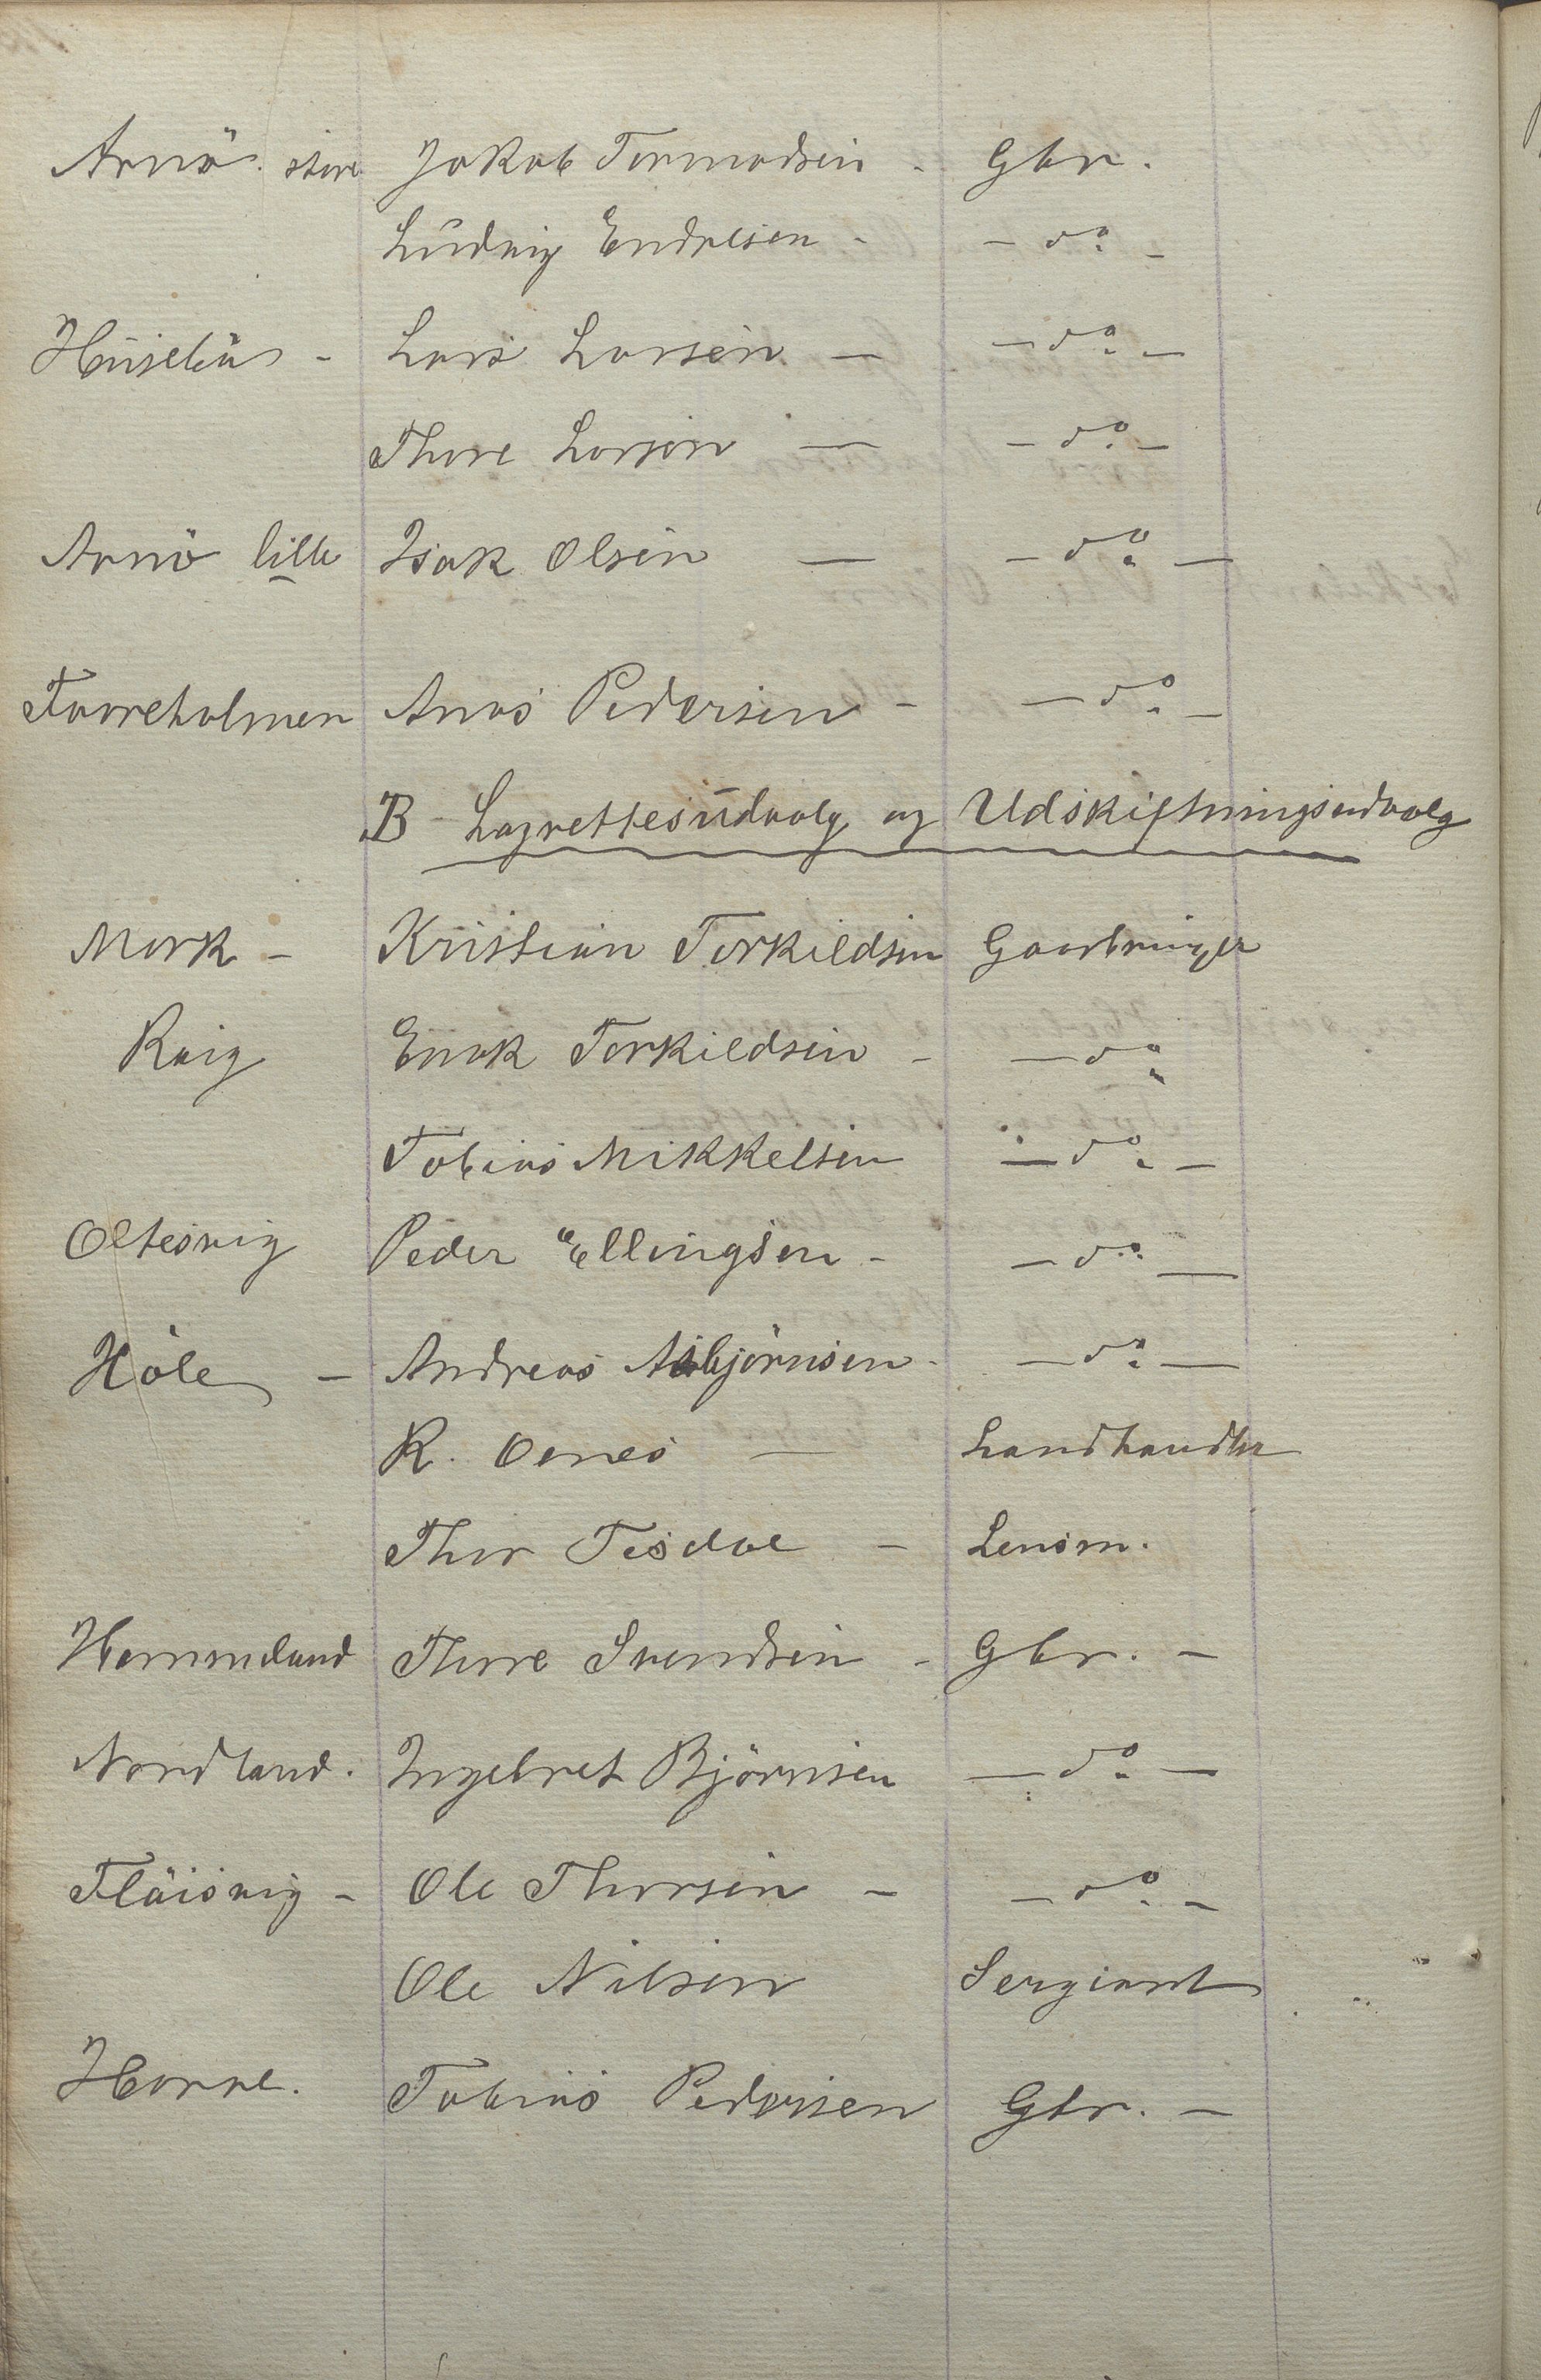 Arnö store Jakob Tormodsen - Gbr.
Ludvig Endresen - - do -
Husebö - Lars Larsen - - do -
Thore Larsen - - do -
Arnö lille Isak Olsen - - do -
Forreholmen Anos Pedersen - - do -
B Lagrettesudvalg og Udskiftningsudvalg
Mork - Kristian Torkildsen Gaarbruger
Raig Enok Torkildsen - - do
Tobias Mikkelsen - do -
Oltesvig Peder Ellingsen - - do -
Höle - Andreas Asbjörnsen - - do -
R. Oenes - Landhandler
Thor Tisdal - Lensm.
Hommeland Thore Svendsen - Gbr. -
Nordland. Ingebret Björnsen - do -
Flöisvig - Ole Thorsen - - do -
Ole Nilsen Sergiant
Horve. Tobias Pedersen Gbr. -